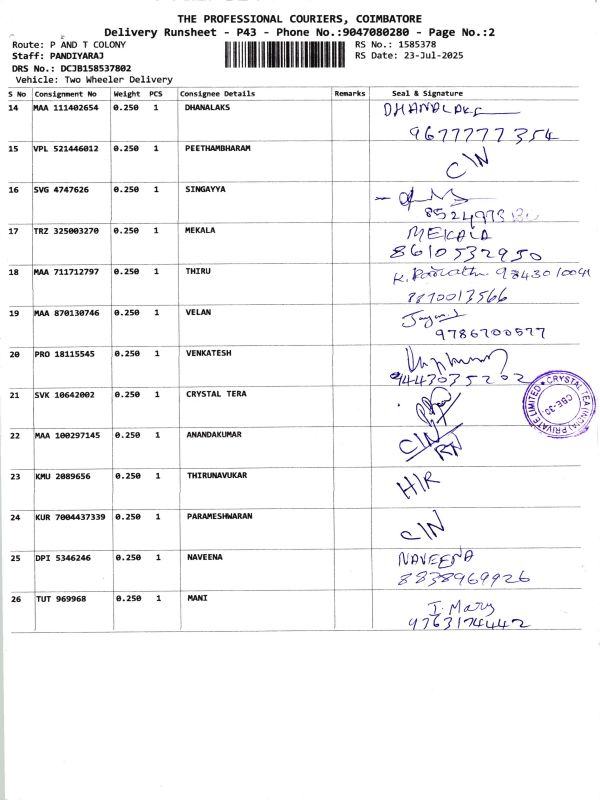 THE PROFESSIONAL COURIERS, COIMBATORE
Delivery Runsheet - P43 - Phone No.:9047080280 - Page No.:2
Route: P AND T COLONY
RS No.: 1585378
Staff: PANDIYARAJ
RS Date: 23-Jul-2025
DRS No.: DCJB158537802
Vehicle: Two Wheeler Delivery
S No Consignment No Weight PCS Consignee Details Remarks Seal & Signature
14 MAA 111402654 0.250 1 DHANALAKS DHANALAKS
9677777354
15 VPL 521446012 0.250 1 PEETHAMBHARAM C/N
16 SVG 4747626 0.250 1 SINGAYYA
17 TRZ 325003270 0.250 1 MEKALA MEKALA
8610532950
18 MAA 711712797 0.250 1 THIRU K. 9843010041
19 MAA 870130746 0.250 1 VELAN
9786700577
20 PRO 18115545 0.250 1 VENKATESH
9443035202
21 SVK 10642002 0.250 1 CRYSTAL TERA
CRYSTAL TEA (INDIA) PRIVATE LIMITED
CBE-30
22 MAA 100297145 0.250 1 ANANDAKUMAR C/N
RN
23 KMU 2089656 0.250 1 THIRUNAVUKAR H/R
24 KUR 7004437339 0.250 1 PARAMESHWARAN C/N
25 DPI 5346246 0.250 1 NAVEENA NAVEENA
8838969926
26 TUT 969968 0.250 1 MANI I. Mary
9763174442